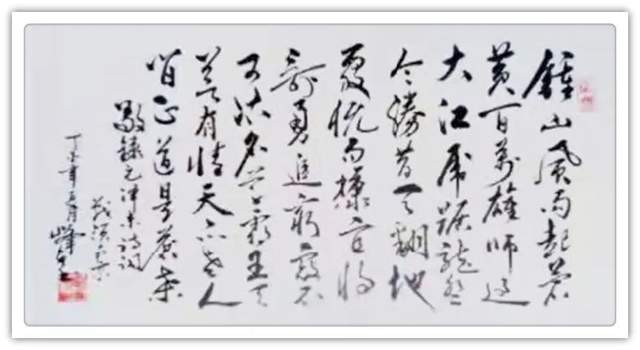 鍾山風雨起蒼
黄百萬雄師過
大江虎踞龍盤
今勝昔天翻地
覆慨而慷宜將
剩勇追窮寇不
可沽名學霸王天
若有情天亦老人
间正道是蒼桑
敬録毛澤东詩詞
丁亥年